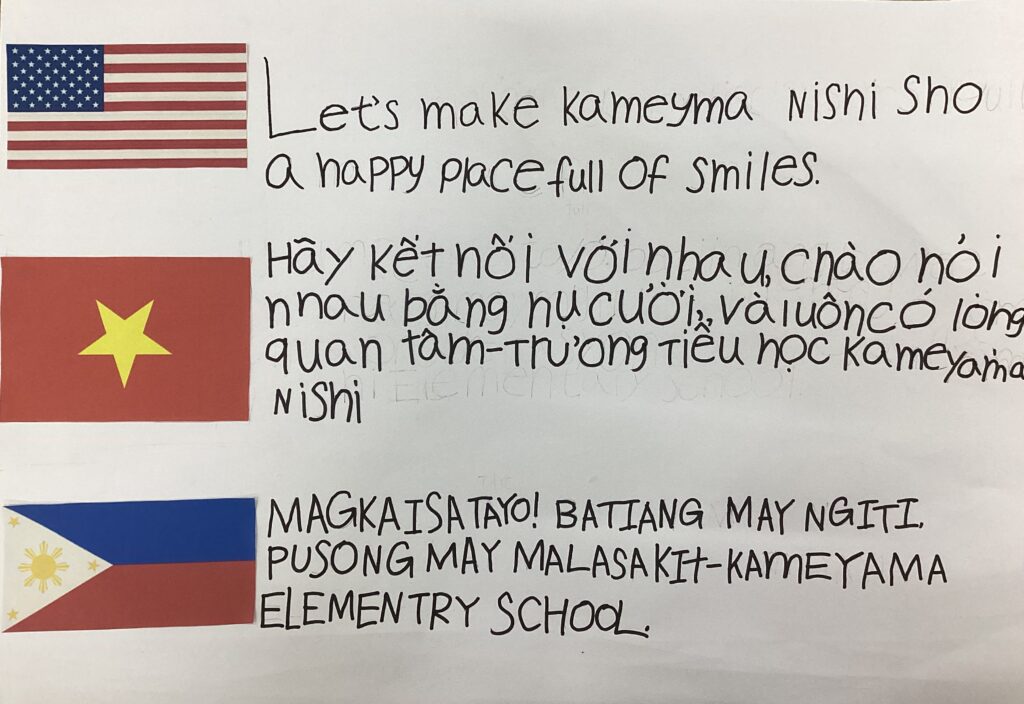 Let's make kameyma Nishi Sho
a happy place full of smiles.
Hãy kết nối với nhau, chào hỏi
nhau bằng nụ cười, và luôn có lòng
quan tâm-Trương Tiểu học Kameyama
Nishi
MAGKAISA TAYO! BATIANG MAY NGITI.
PUSONG MAY MALASAKIt-KAMEYAMA
ELEMENTRY SCHOOL.